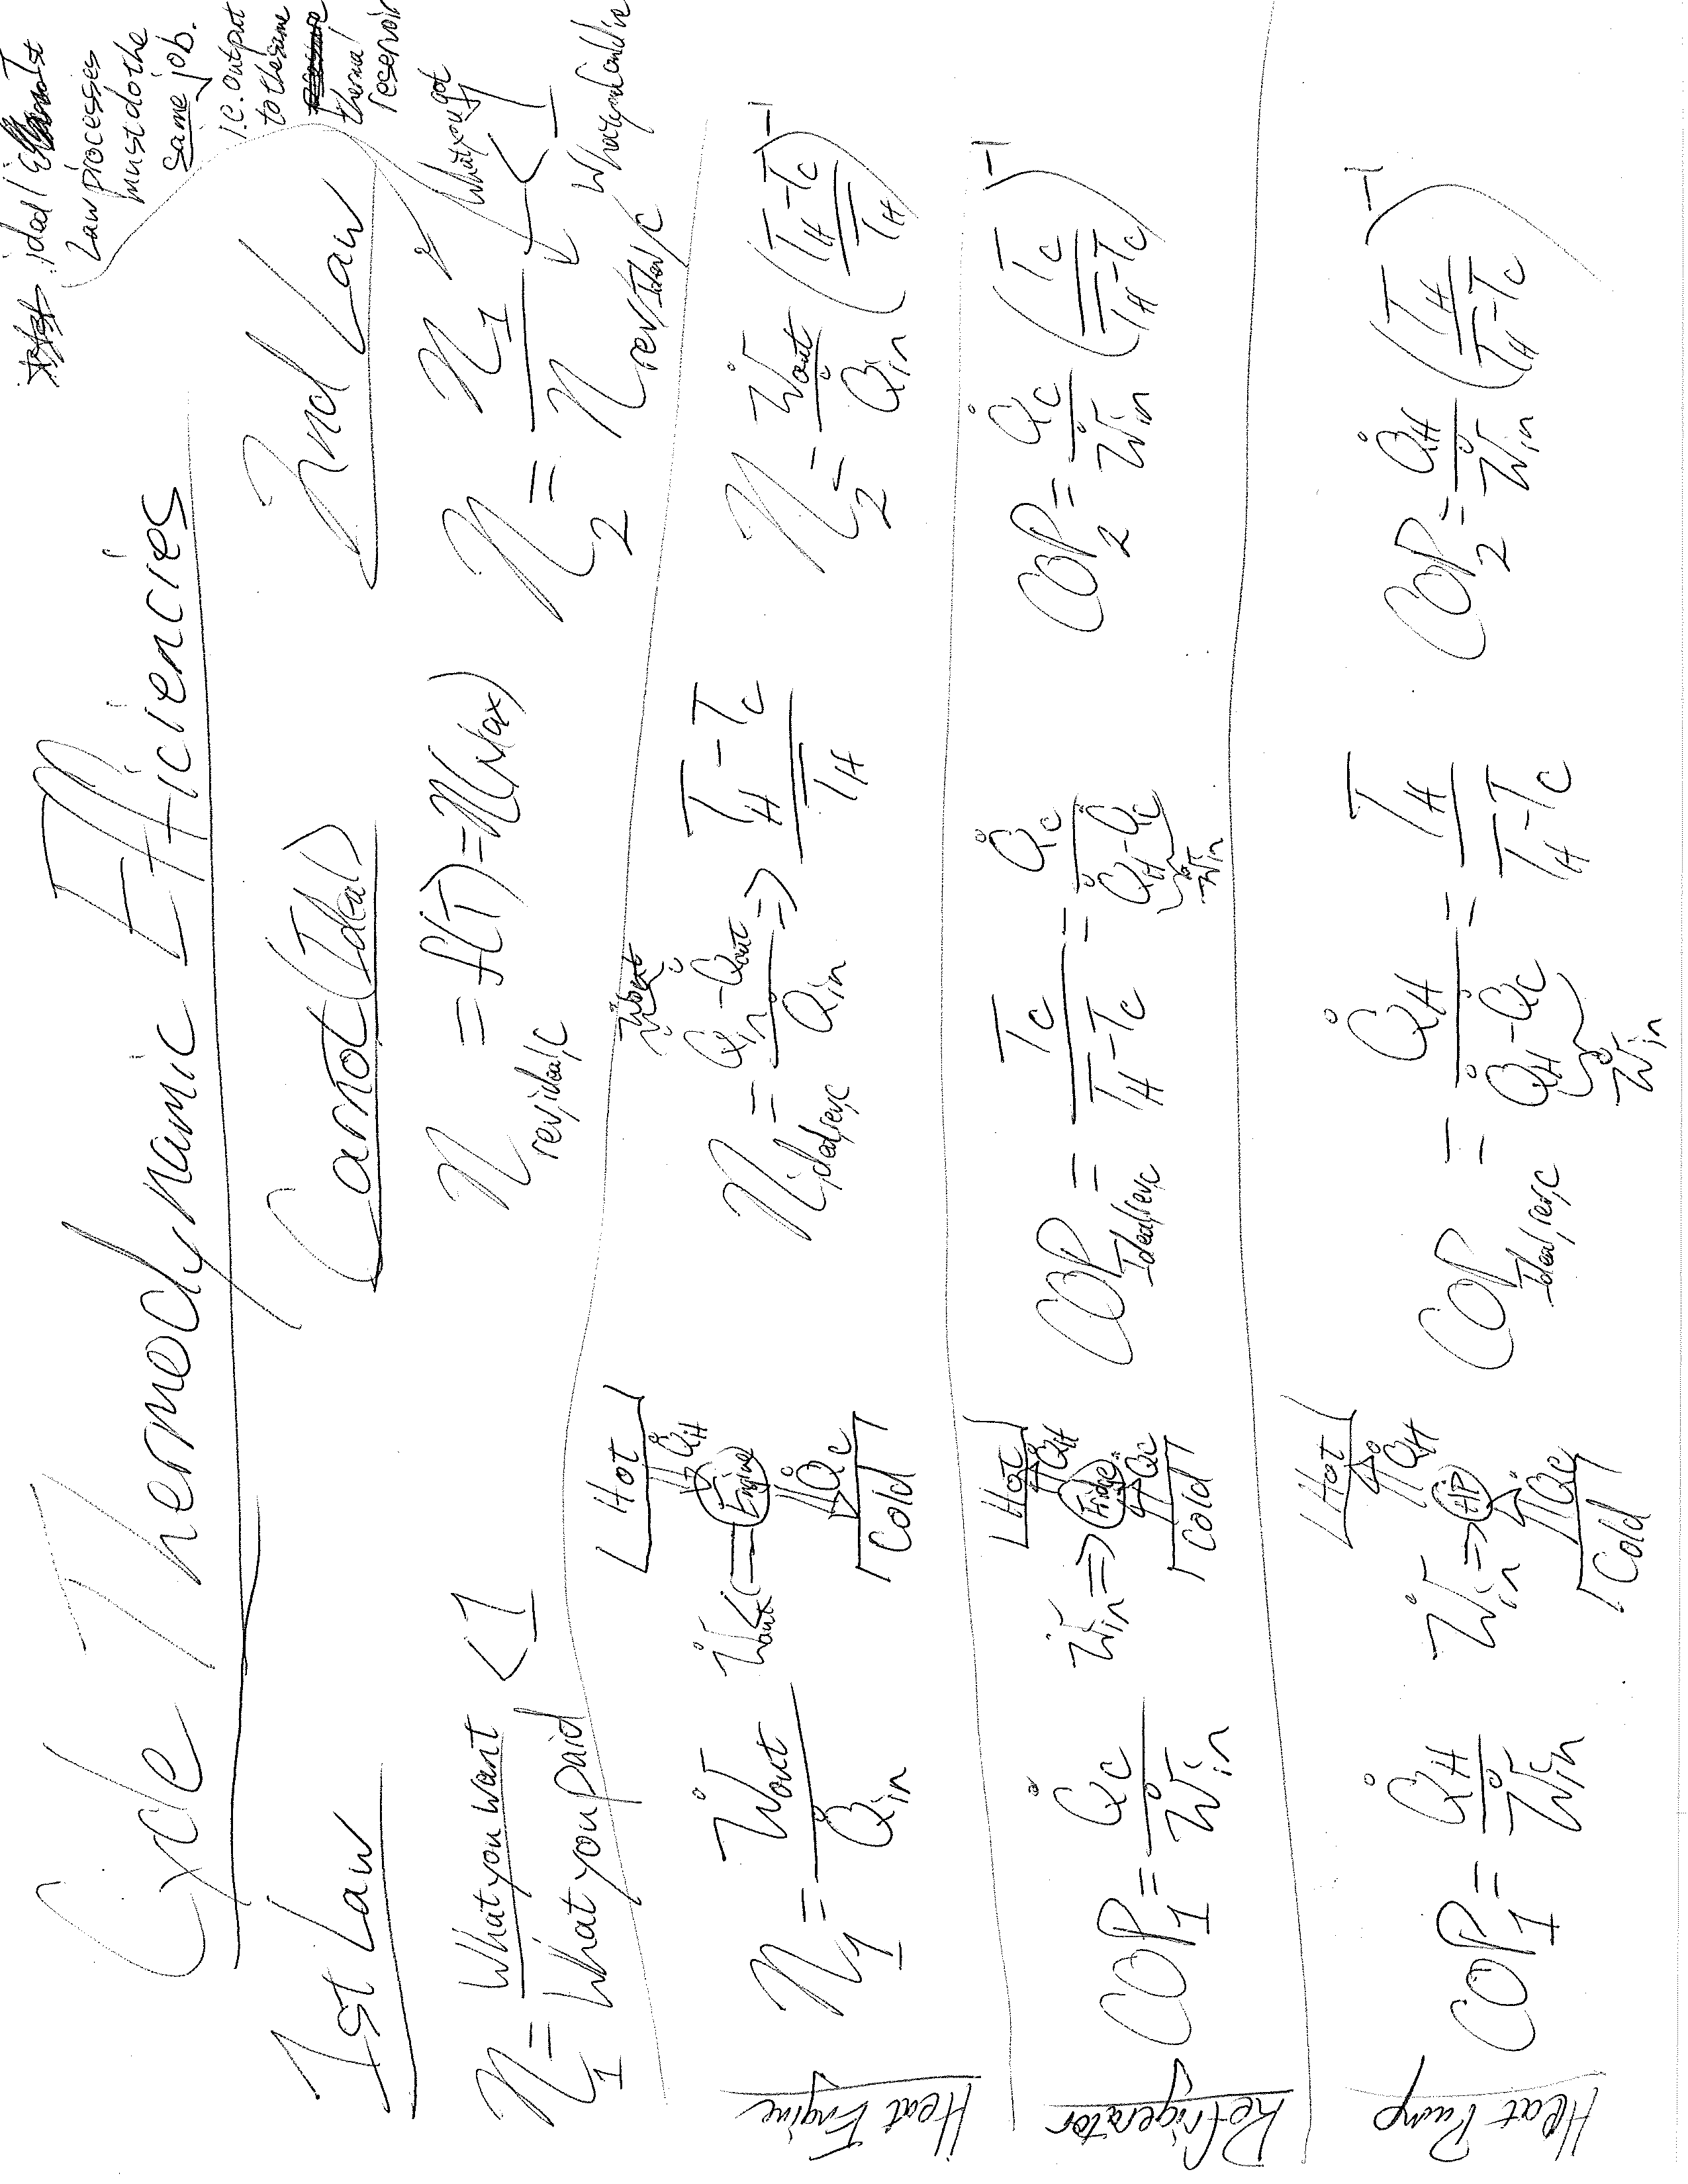 Cycle Thermodynamic Efficiencies
ideal, 1st
Law processes
must do the
same job.
i.e. output
to the same
thermal
reservoir
1st Law
Carnot (Ideal)
2nd Law
η₁ = What you want / What you paid < 1
η rev,ideal,c = f(T) = η(Max)
η₂ = η₁ / η rev,Ideal,c < 1
What you got
What you could've
Heat Engine
η₁ = Ẇout / Q̇in
Hot
Q̇H
Ẇout <= Engine
Q̇C
Cold
η ideal,rev,c = (Q̇in - Q̇out) / Q̇in => (TH - TC) / TH
Ẇout
η₂ = Ẇout / Q̇in ((TH - TC) / TH)⁻¹
Refrigerator
COP₁ = Q̇C / Ẇin
Hot
Q̇H
Ẇin => Fridge
Q̇C
Cold
COP Ideal,rev,c = TC / (TH - TC) = Q̇C / (Q̇H - Q̇C)
Ẇin
COP₂ = Q̇C / Ẇin (TC / (TH - TC))⁻¹
Heat Pump
COP₁ = Q̇H / Ẇin
Hot
Q̇H
Ẇin => HP
Q̇C
Cold
COP Ideal,rev,c = Q̇H / (Q̇H - Q̇C) = TH / (TH - TC)
Ẇin
COP₂ = Q̇H / Ẇin (TH / (TH - TC))⁻¹